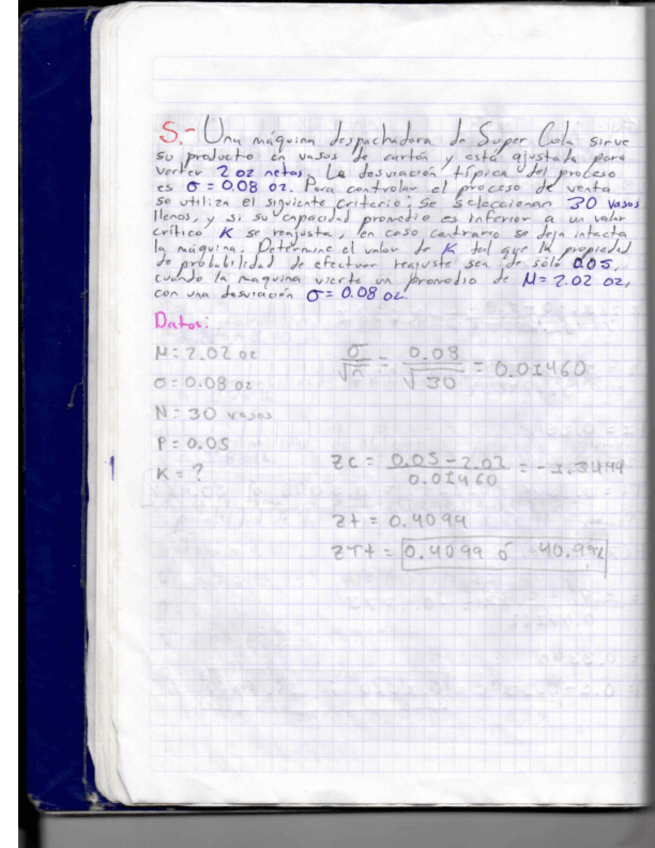 5.- Una máquina despachadora de Super Cola sirve
su producto en vasos de cartón y está ajustada para
verter 2 oz netas. La desviación típica del proceso
es σ = 0.08 oz. Para controlar el proceso de venta
se utiliza el siguiente criterio; Se seleccionan 30 vasos
llenos, y si su capacidad promedio es inferior a un valor
crítico K se reajusta, en caso contrario se deja intacta
la máquina. Determine el valor de K tal que la propiedad
de probabilidad de efectuar reajuste sea de sólo 0.05,
cuando la maquina vierte un promedio de M = 2.02 oz,
con una desviación σ = 0.08 oz.
Datos:
M = 2.02 oz
σ = 0.08 oz
N = 30 vasos
P = 0.05
K = ?
σ/√n = 0.08/√30 = 0.01460
Zc = 0.05 - 2.02 / 0.01460 =
Zt = 0.4099
ZTt = 0.4099 ó 40.99%